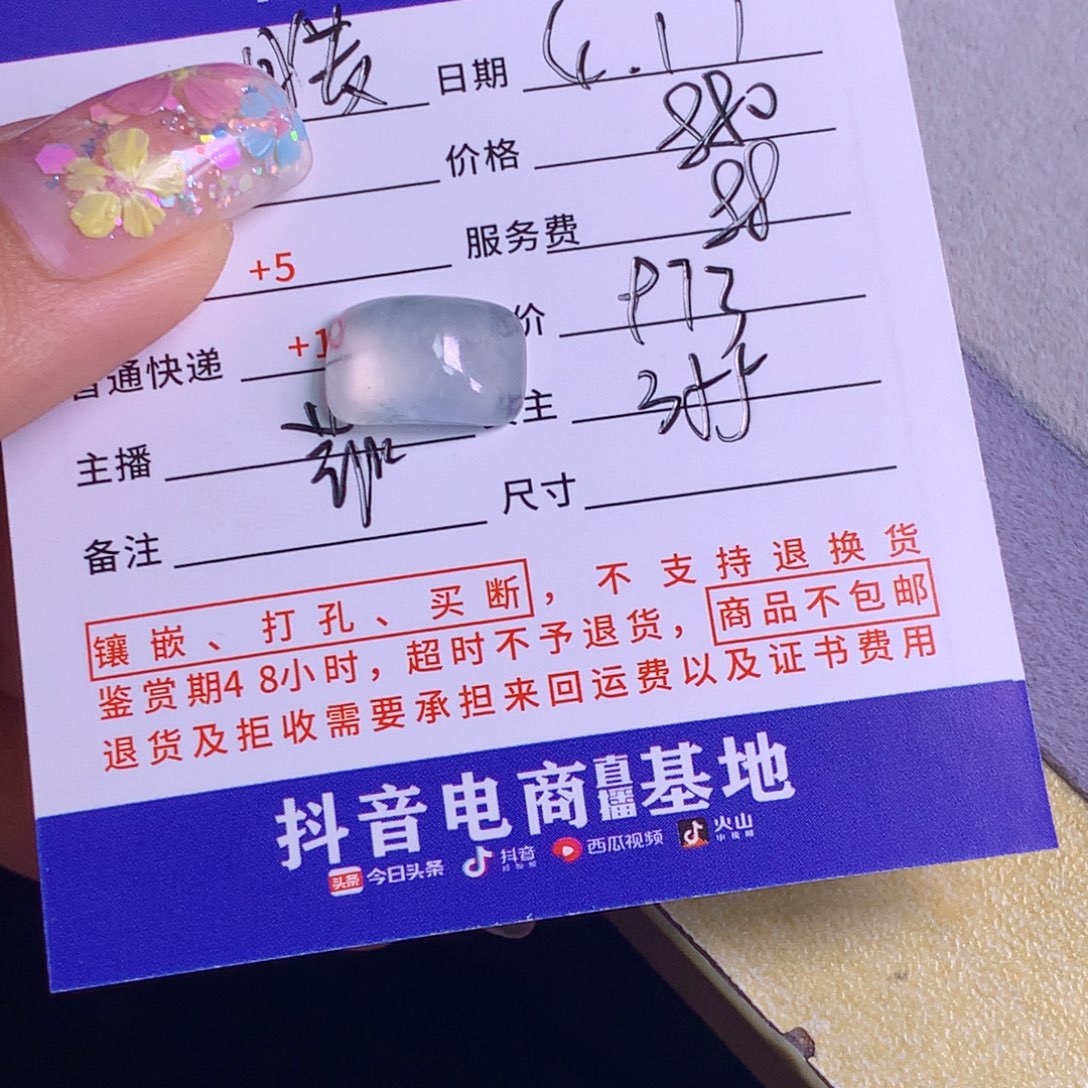 日期 6.17
价格 880
服务费 88
+5
价 973
普通快递 +10
主
主播
尺寸
备注
镶嵌、打孔、买断，不支持退换货
鉴赏期48小时，超时不予退货，商品不包邮
退货及拒收需要承担来回运费以及证书费用
抖音电商直播基地
头条 今日头条 抖音 西瓜视频 火山